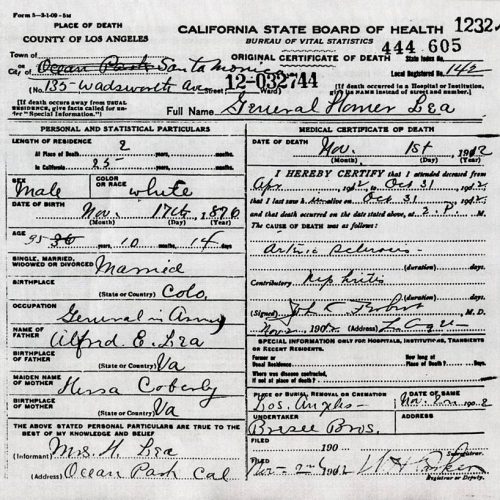 Form 5—3-1-09-5M
PLACE OF DEATH
COUNTY OF LOS ANGELES
CALIFORNIA STATE BOARD OF HEALTH
1232
BUREAU OF VITAL STATISTICS
444 605
Town of
City of
Ocean Park Santa Monica
ORIGINAL CERTIFICATE OF DEATH
State Index No.
Local Registered No. 142
(No. 135- Wadsworth Ave Street Ward)
12-032744
(If death occurred in a Hospital or Institution, give its NAME instead of street and number.)
(If death occurs away from USUAL RESIDENCE, give facts called for under "Special Information.")
Full Name General Homer Lea
PERSONAL AND STATISTICAL PARTICULARS
LENGTH OF RESIDENCE
At Place of Death, 2 years, months, days
In California years, months, days
SEX
Male
COLOR OR RACE
white
DATE OF BIRTH
Nov. 17th, 1876
(Month) (Day) (Year)
AGE
35 36 years, 10 months, 14 days
SINGLE, MARRIED, WIDOWED OR DIVORCED
Married
BIRTHPLACE
(State or Country) Colo.
OCCUPATION
General in Army
NAME OF FATHER
Alfred E. Lea
BIRTHPLACE OF FATHER
(State or Country) Va
MAIDEN NAME OF MOTHER
Coberly
BIRTHPLACE OF MOTHER
(State or Country) Va
THE ABOVE STATED PERSONAL PARTICULARS ARE TRUE TO THE BEST OF MY KNOWLEDGE AND BELIEF
(Informant) Mrs. H. Lea
(Address) Ocean Park Cal
MEDICAL CERTIFICATE OF DEATH
DATE OF DEATH
Nov. 1st 1912
(Month) (Day) (Year)
I HEREBY CERTIFY that I attended deceased from
Apr 1912 to Oct 31 1912
that I last saw h alive on Oct 31 1912
and that death occurred on the date stated above, at 2. P. M.
The CAUSE OF DEATH was as follows:
(duration) days
Contributory Nephritis
(duration) days
(Signed) M. D.
(Address)
SPECIAL INFORMATION ONLY FOR HOSPITALS, INSTITUTIONS, TRANSIENTS OR RECENT RESIDENTS.
Former or Usual Residence
How long at Place of Death? Days
Where was disease contracted, if not at place of death?
PLACE OF BURIAL, REMOVAL OR CREMATION
Los Angeles
DATE OF SAME
Nov. 190
UNDERTAKER
Bresee Bros.
ADDRESS
FILED
190
FILED
Registrar or Deputy.